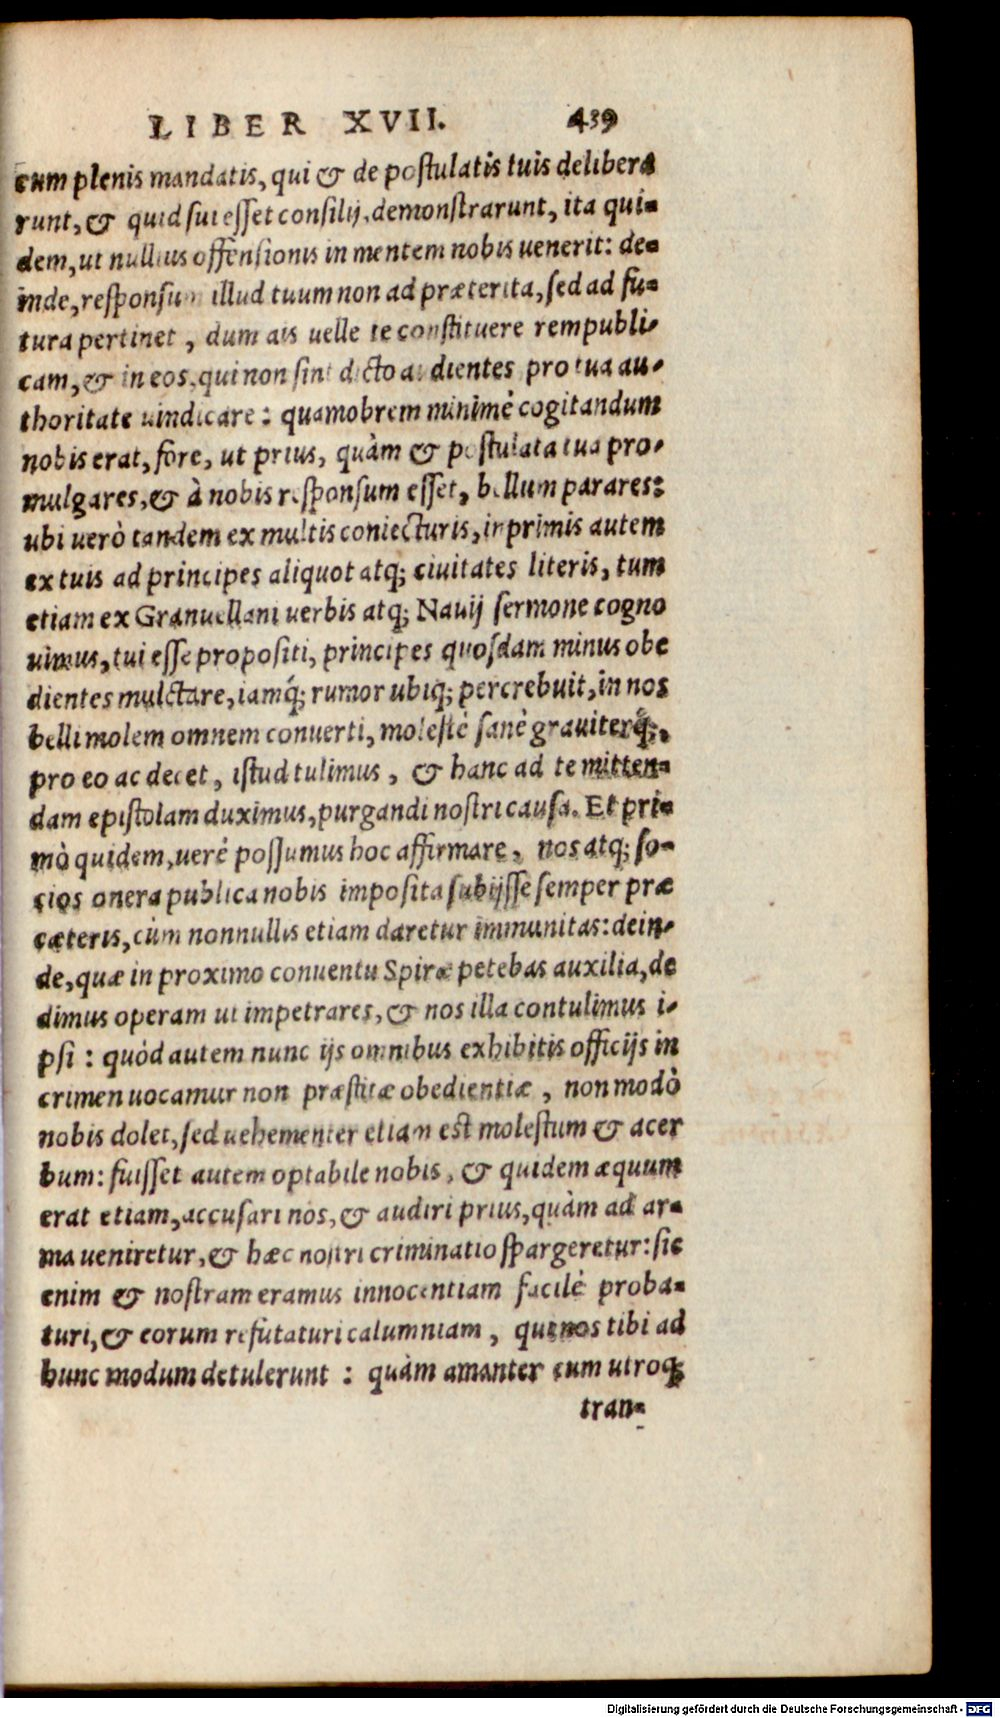 LIBER XVII. 439
cum plenis mandatis, qui & de postulatis tuis delibera
runt, & quid sui esset consilij, demonstrarunt, ita qui-
dem, ut nullius offensionis in mentem nobis uenerit: de-
inde, responsum illud tuum non ad præterita, sed ad fu-
tura pertinet, dum ais uelle te constituere rempubli-
cam, & in eos, qui non sint dicto audientes pro tua au-
thoritate uindicare: quamobrem minimè cogitandum
nobis erat, fore, ut prius, quàm & postulata tua pro-
mulgares, & à nobis responsum esset, bellum parares:
ubi uerò tandem ex multis coniecturis, inprimis autem
ex tuis ad principes aliquot atq; ciuitates literis, tum
etiam ex Granuellani uerbis atq; Nauij sermone cogno
uimus, tui esse propositi, principes quosdam minus obe
dientes mulctare, iamq́; rumor ubiq; percrebuit, in nos
belli molem omnem conuerti, molestè sanè grauiterq́;,
pro eo ac decet, istud tulimus, & hanc ad te mitten-
dam epistolam duximus, purgandi nostri causa. Et pri-
mò quidem, uerè possumus hoc affirmare, nos atq; so-
cios onera publica nobis imposita subijsse semper præ
cæteris, cùm nonnullis etiam daretur immunitas: dein-
de, quæ in proximo conuentu Spiræ petebas auxilia, de
dimus operam ut impetrares, & nos illa contulimus i-
psi: quòd autem nunc ijs omnibus exhibitis officijs in
crimen uocamur non præstitæ obedientiæ, non modò
nobis dolet, sed uehementer etiam est molestum & acer
bum: fuisset autem optabile nobis, & quidem æquum
erat etiam, accusari nos, & audiri prius, quàm ad ar-
ma ueniretur, & hæc nostri criminatio spargeretur: sic
enim & nostram eramus innocentiam facilè proba-
turi, & eorum refutaturi calumniam, qui nos tibi ad
hunc modum detulerunt: quàm amanter cum utroq;
tran-
Digitalisierung gefördert durch die Deutsche Forschungsgemeinschaft - DFG